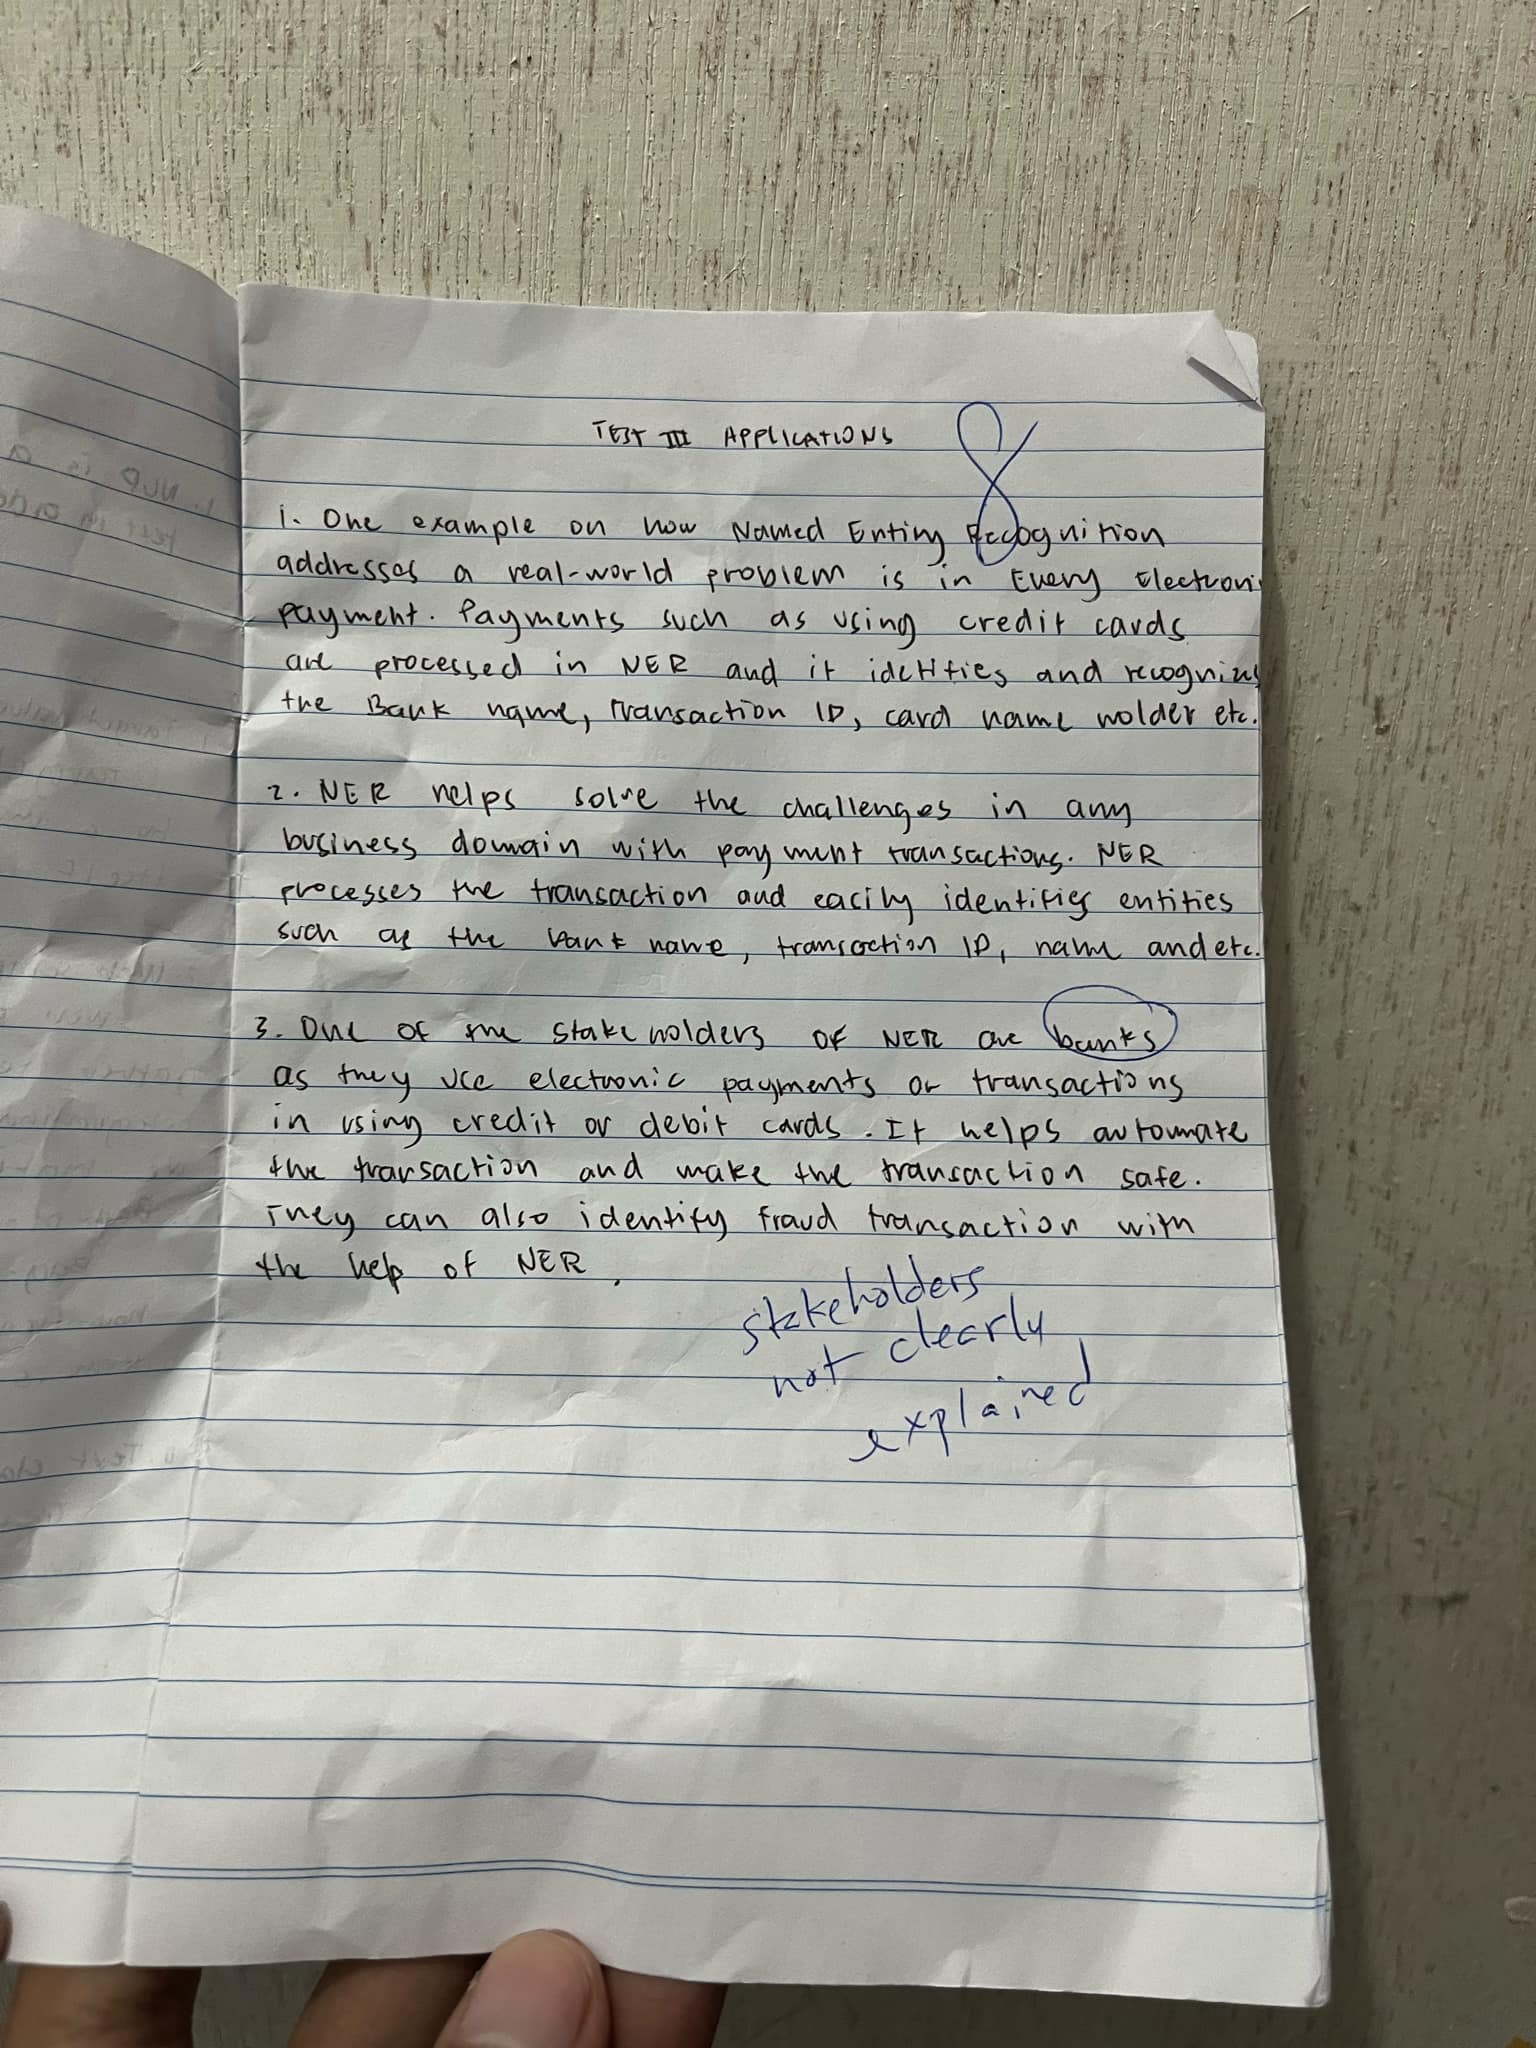 TEST III APPLICATIONS
8
1. One example on how Named Entiny Recognition
addresses a real-world problem is in Every Electroni
payment. Payments such as using credit cards
are processed in NER and it idetities and recognizes
the Bank name, Transaction ID, card name holder etc.
2. NER helps solve the challenges in any
business domain with payment transactions. NER
processes the transaction and eacily identifies entities
such as the bank name, transaction ID, name and etc.
3. One of the stakeholders of NER are banks
as they use electronic payments or transactions
in using credit or debit cards. It helps automate
the transaction and make the transaction safe.
They can also identify fraud transaction with
the help of NER.
stakeholders
not clearly
explained
1. NLP is a